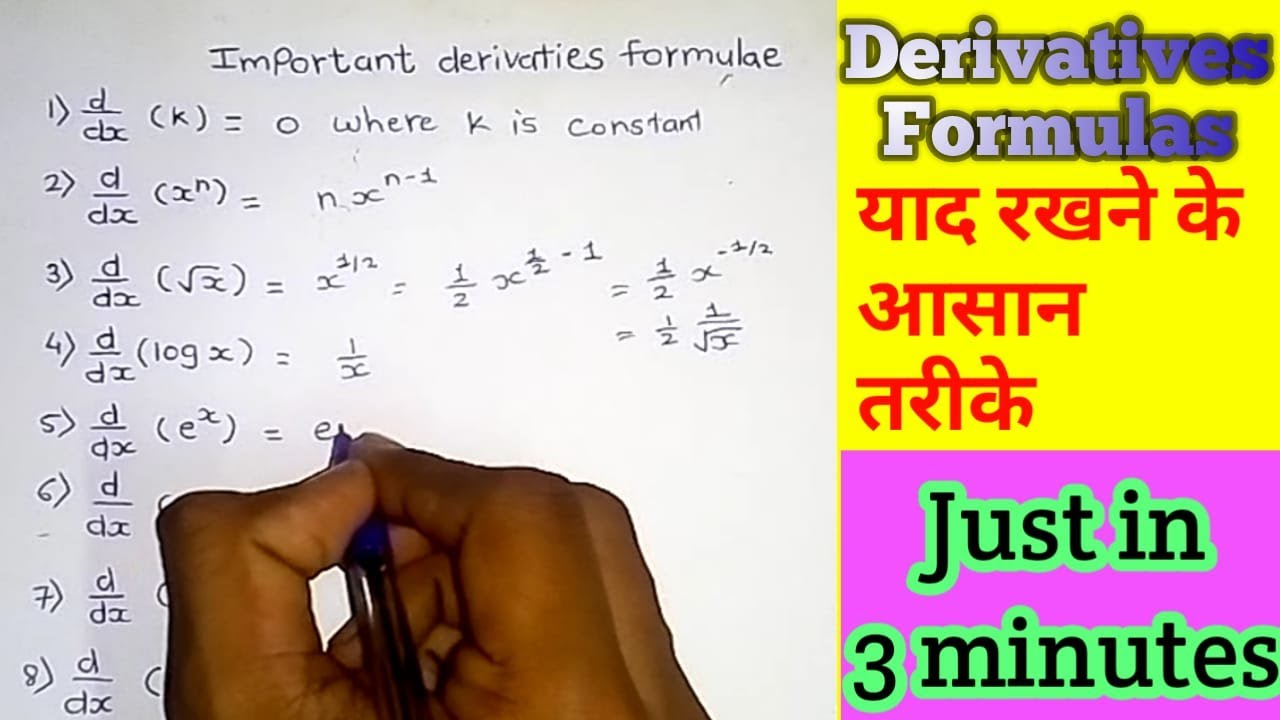 Important derivaties formulae
1) d/dx (k) = 0 where k is constant
2) d/dx (xⁿ) = n.xⁿ⁻¹
3) d/dx (√x) = x^1/2 = 1/2 x^1/2 - 1 = 1/2 x^-1/2
= 1/2 1/√x
4) d/dx (log x) = 1/x
5) d/dx (eˣ) = e
6) d/dx (
7) d/dx (
8) d/dx (
Derivatives
Formulas
याद रखने के
आसान
तरीके
Just in
3 minutes